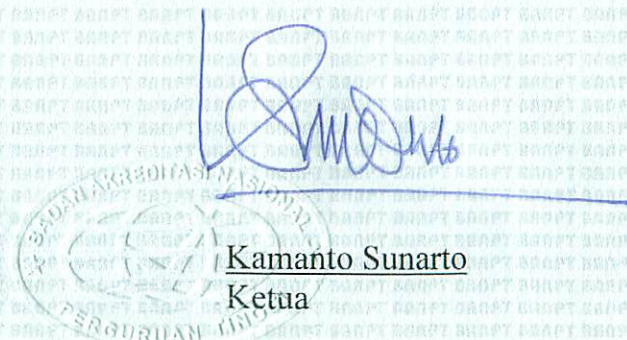 BADAN AKREDITASI NASIONAL
PERGURUAN TINGGI
Kamanto Sunarto
Ketua